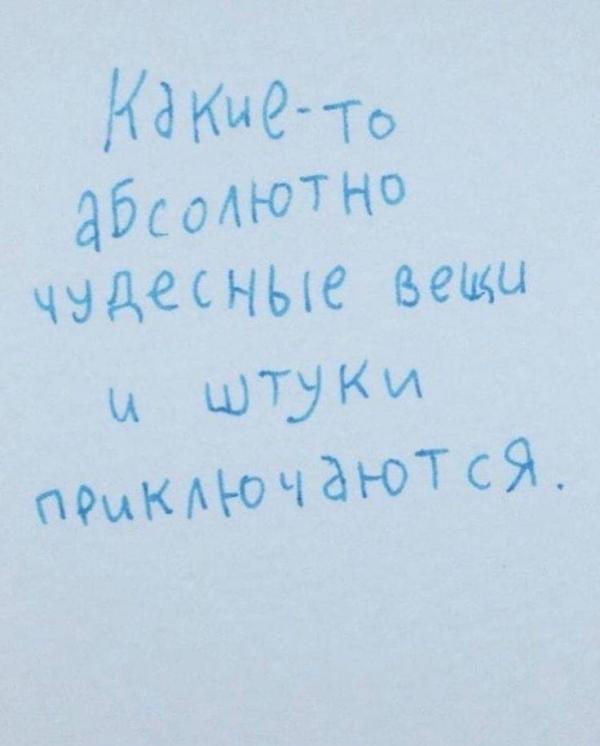 Какие-то
абсолютно
чудесные вещи
и штуки
приключаются.